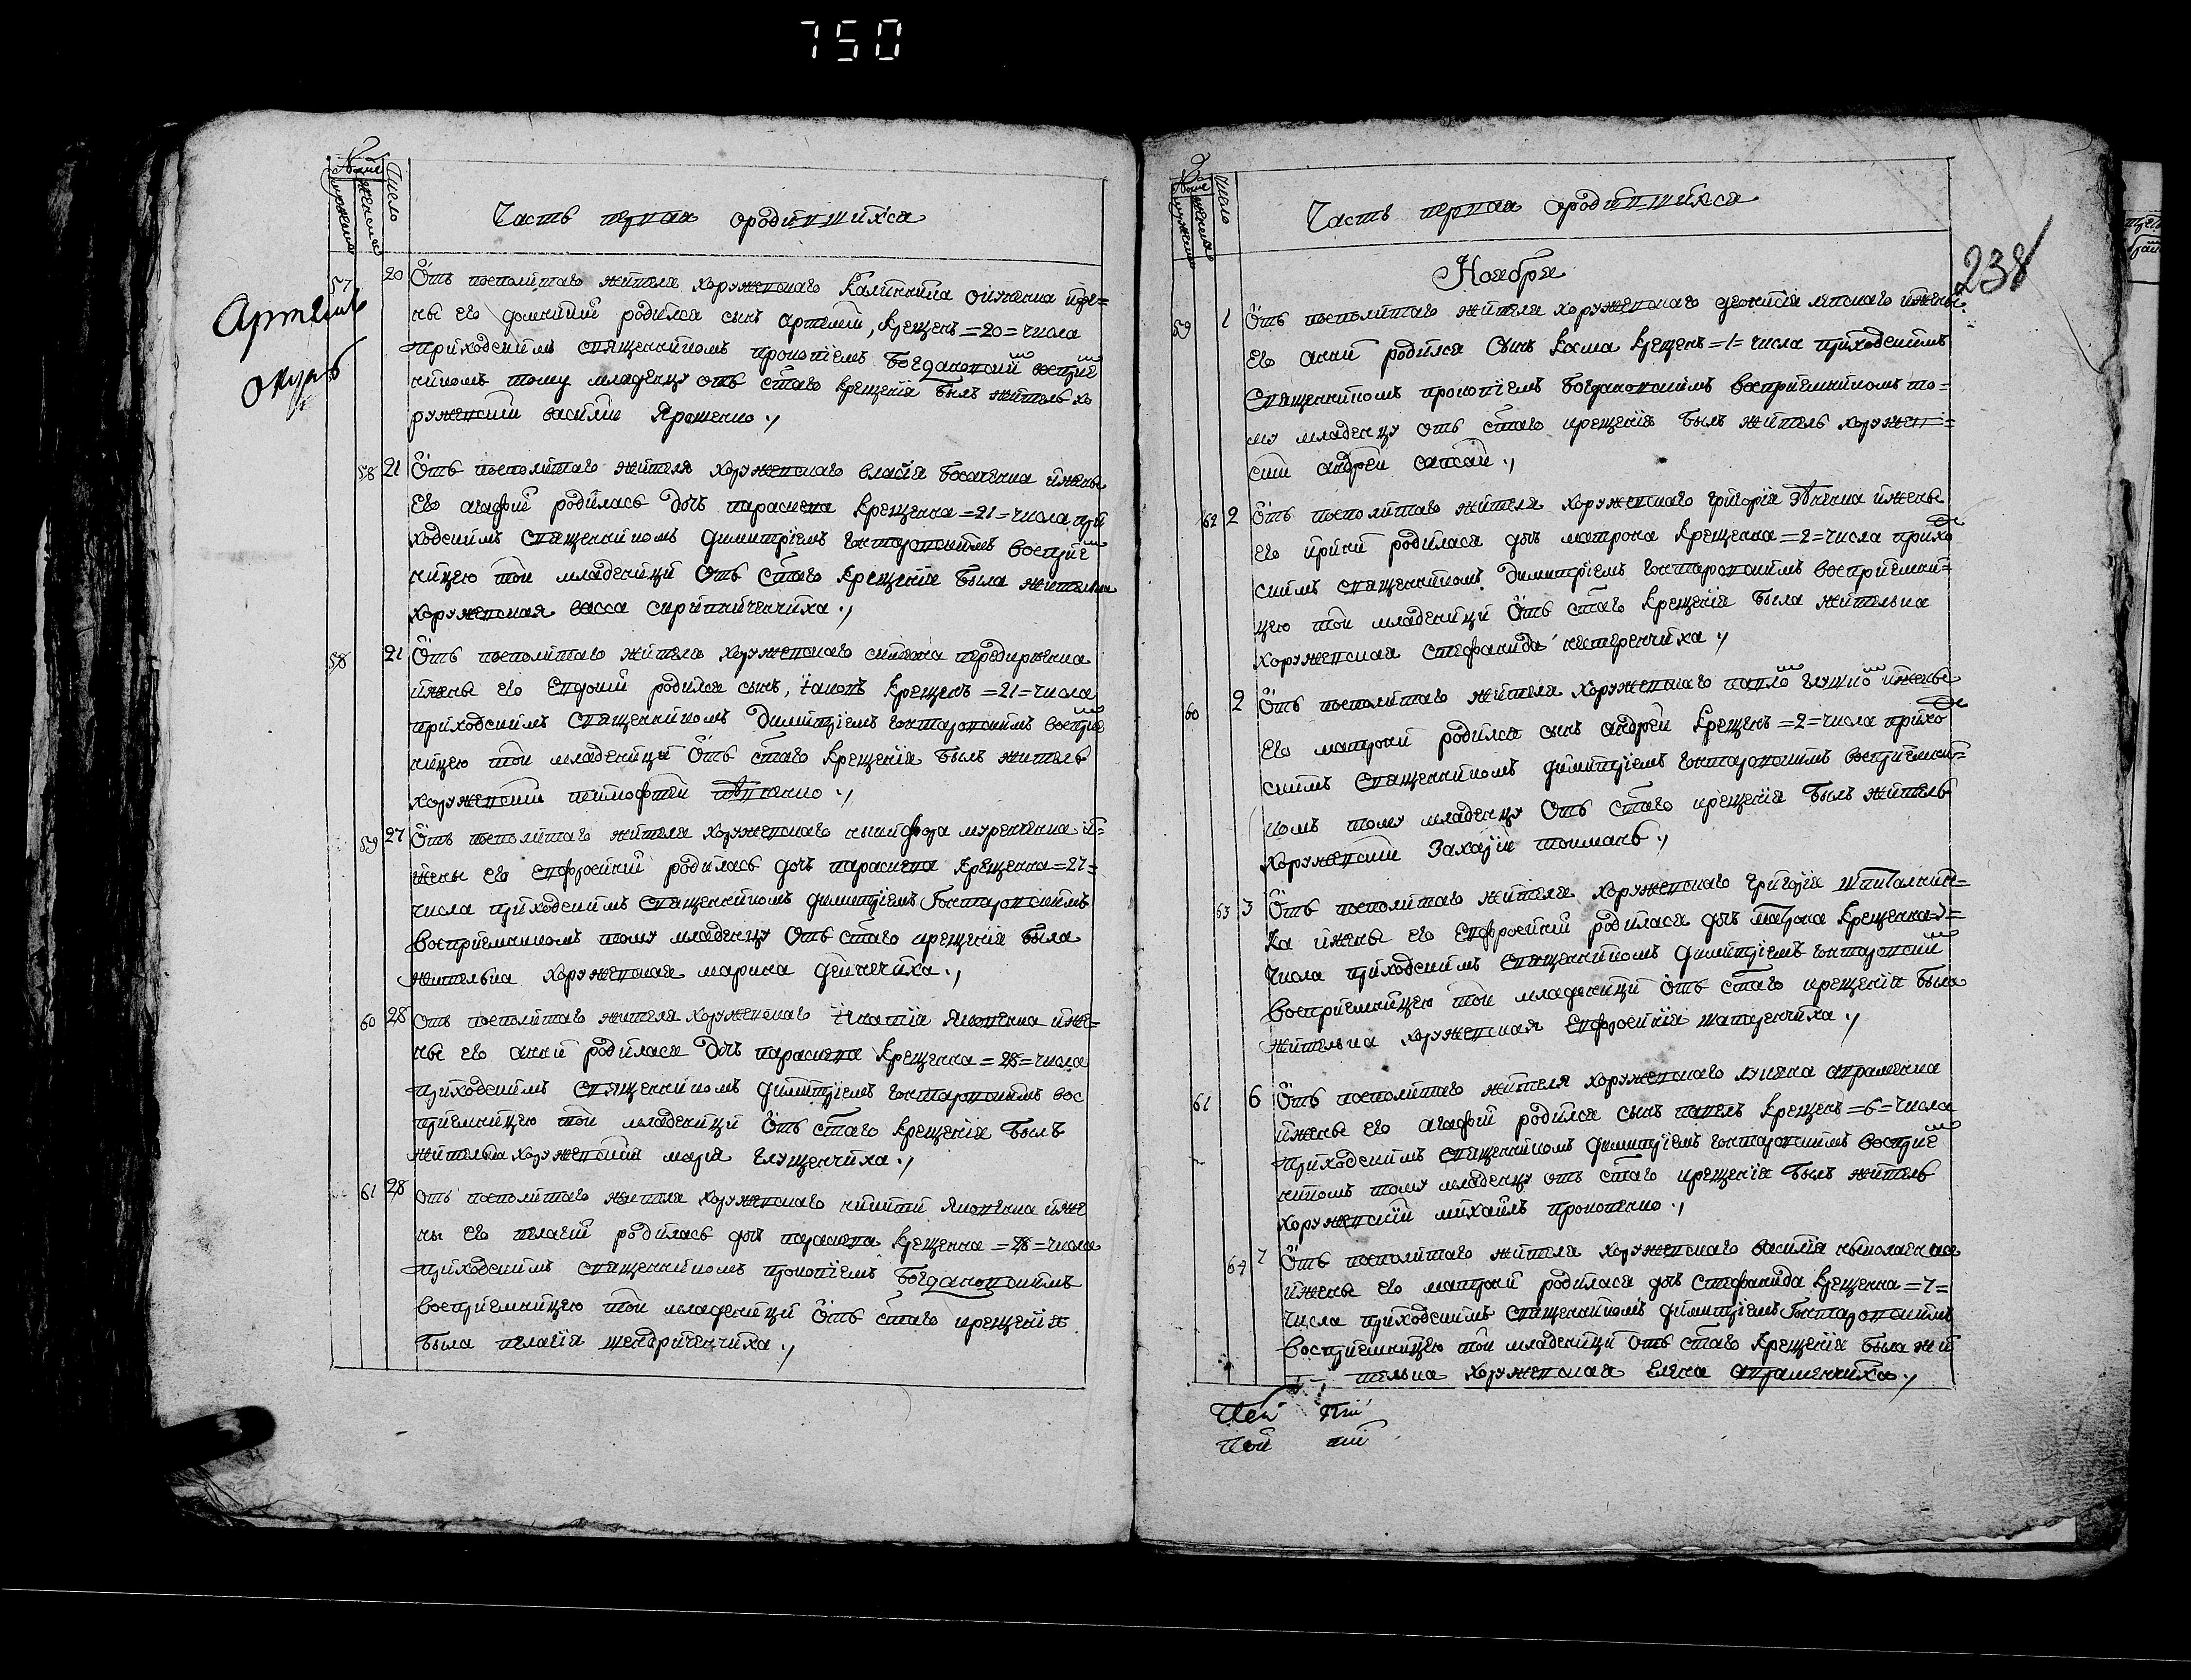 750
Артемъ
Числo
Часть первая ородившихса
57 20 Ѿ посполитаго жителя хоружевского
ны его домникии родился сынъ артемій, крещенъ =20= числа
приходскимъ священникомъ прокопіемъ Богдановскимъ восприе
никомъ тому младенцу отъ стаго крещенія былъ житель хо
ружевскій василій Ярошенко ./
58 21 Ѿ посполитаго жителя хоружевского власія и жены
его агафіи родилась дочь параскева крещенна =21= числа при
ходскимъ священникомъ димитріемъ восприе
ницею той младеници отъ стаго крещенія была жителка
хоружевская васса ./
58 21 Ѿ посполитаго жителя хоружевского
и жены его евдокіи родился сынъ, іаковъ крещенъ =21= числа
приходскимъ священникомъ Димитріемъ восприе
ницею той младеници Ѿ стаго крещенія былъ житель
хоружевскій тимофтей ./
59 27 Ѿ посполитаго жителя хоружевского никифора муренченка и=
жены его евфросиніи родилась дочъ параскева крещенна =27=
числа приходскимъ священникомъ димитріемъ
воспріемникомъ тому младенцу Отъ стаго крещенія была
жителка хоружевская марина ./
60 28 Отъ посполитаго жителя хоружевского Игнатія Яковенка и же=
ны его анни родилася дочь параскева крещенна =28= числа
приходскимъ священникомъ димитріемъ вос
пріемницею той младеници Ѿ стаго крещенія былъ
жителка хоружевскій марія глущенчиха ./
61 28 отъ посполитаго жителя хоружевского никити Яковенка и же
ны его пелагіи родилась дочъ параскева крещенна =28= числа
приходскимъ священникомъ прокопіемъ Богдановскимъ
воспріемницею той младеници Ѿ стаго крещенія
была пелагія ./
Числo
Часть первая ородившихся
238
Ноября
59 1 Ѿ посполитаго жителя хоружевского деонисія и жены
его анни родился сынъ косма крещенъ =1= числа приходскимъ
священникомъ прокопіемъ богдановскимъ воспріемникомъ то=
му младенцу отъ стаго крещенія былъ житель хоружев=
скій андрей сапсай ./
62 2 Ѿ посполитаго жителя хоружевского григорія и жены
его ирини родилася дочь матрона крещенна =2= числа приход
скимъ священникомъ Димитріемъ воспріемни=
цею той младеници Ѿ стаго крещенія была жителка
хоружевская стефанида нестеренчиха ./
60 2 Ѿ посполитаго жителя хоружевского и жены
его матрони родился сынъ андрей крещенъ =2= числа приход
скимъ священникомъ димитріемъ воспріемни=
комъ тому младенцу Отъ стаго крещенія былъ житель
хоружевскій Захарій ./
63 3 Ѿ посполитаго жителя хоружевского григорія
ка и жены его Евфросиніи родилася дочъ матрона крещенна =3=
числа приходскимъ священникомъ димитріемъ
воспріемницею той младеници отъ стаго крещенія была
жителка хоружевская Евфросинія шапаренчиха ./
61 6 Ѿ посполитаго жителя хоружевского лукяна
и жены его агафіи родился сынъ павелъ крещенъ =6= числа
приходскимъ священникомъ димитріемъ восприе
никомъ тому младенцу отъ стаго крещенія былъ житель
хоружевскій михаилъ прокопенко ./
64 7 Ѿ посполитаго жителя хоружевского василія
и жены его матрони родилася дочь стефанида крещенна =7=
числа приходскимъ священникомъ димитріемъ
воспріемницею той младеници отъ стаго крещенія была жи
телка хоружевская Елена ./